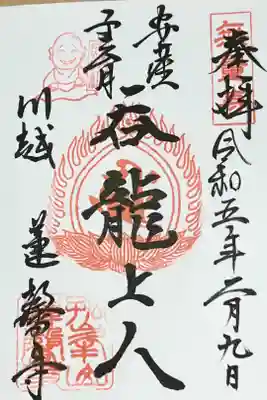 奉拝
令和五年二月九日
安産
子育
呑龍上人
川越　蓮馨寺